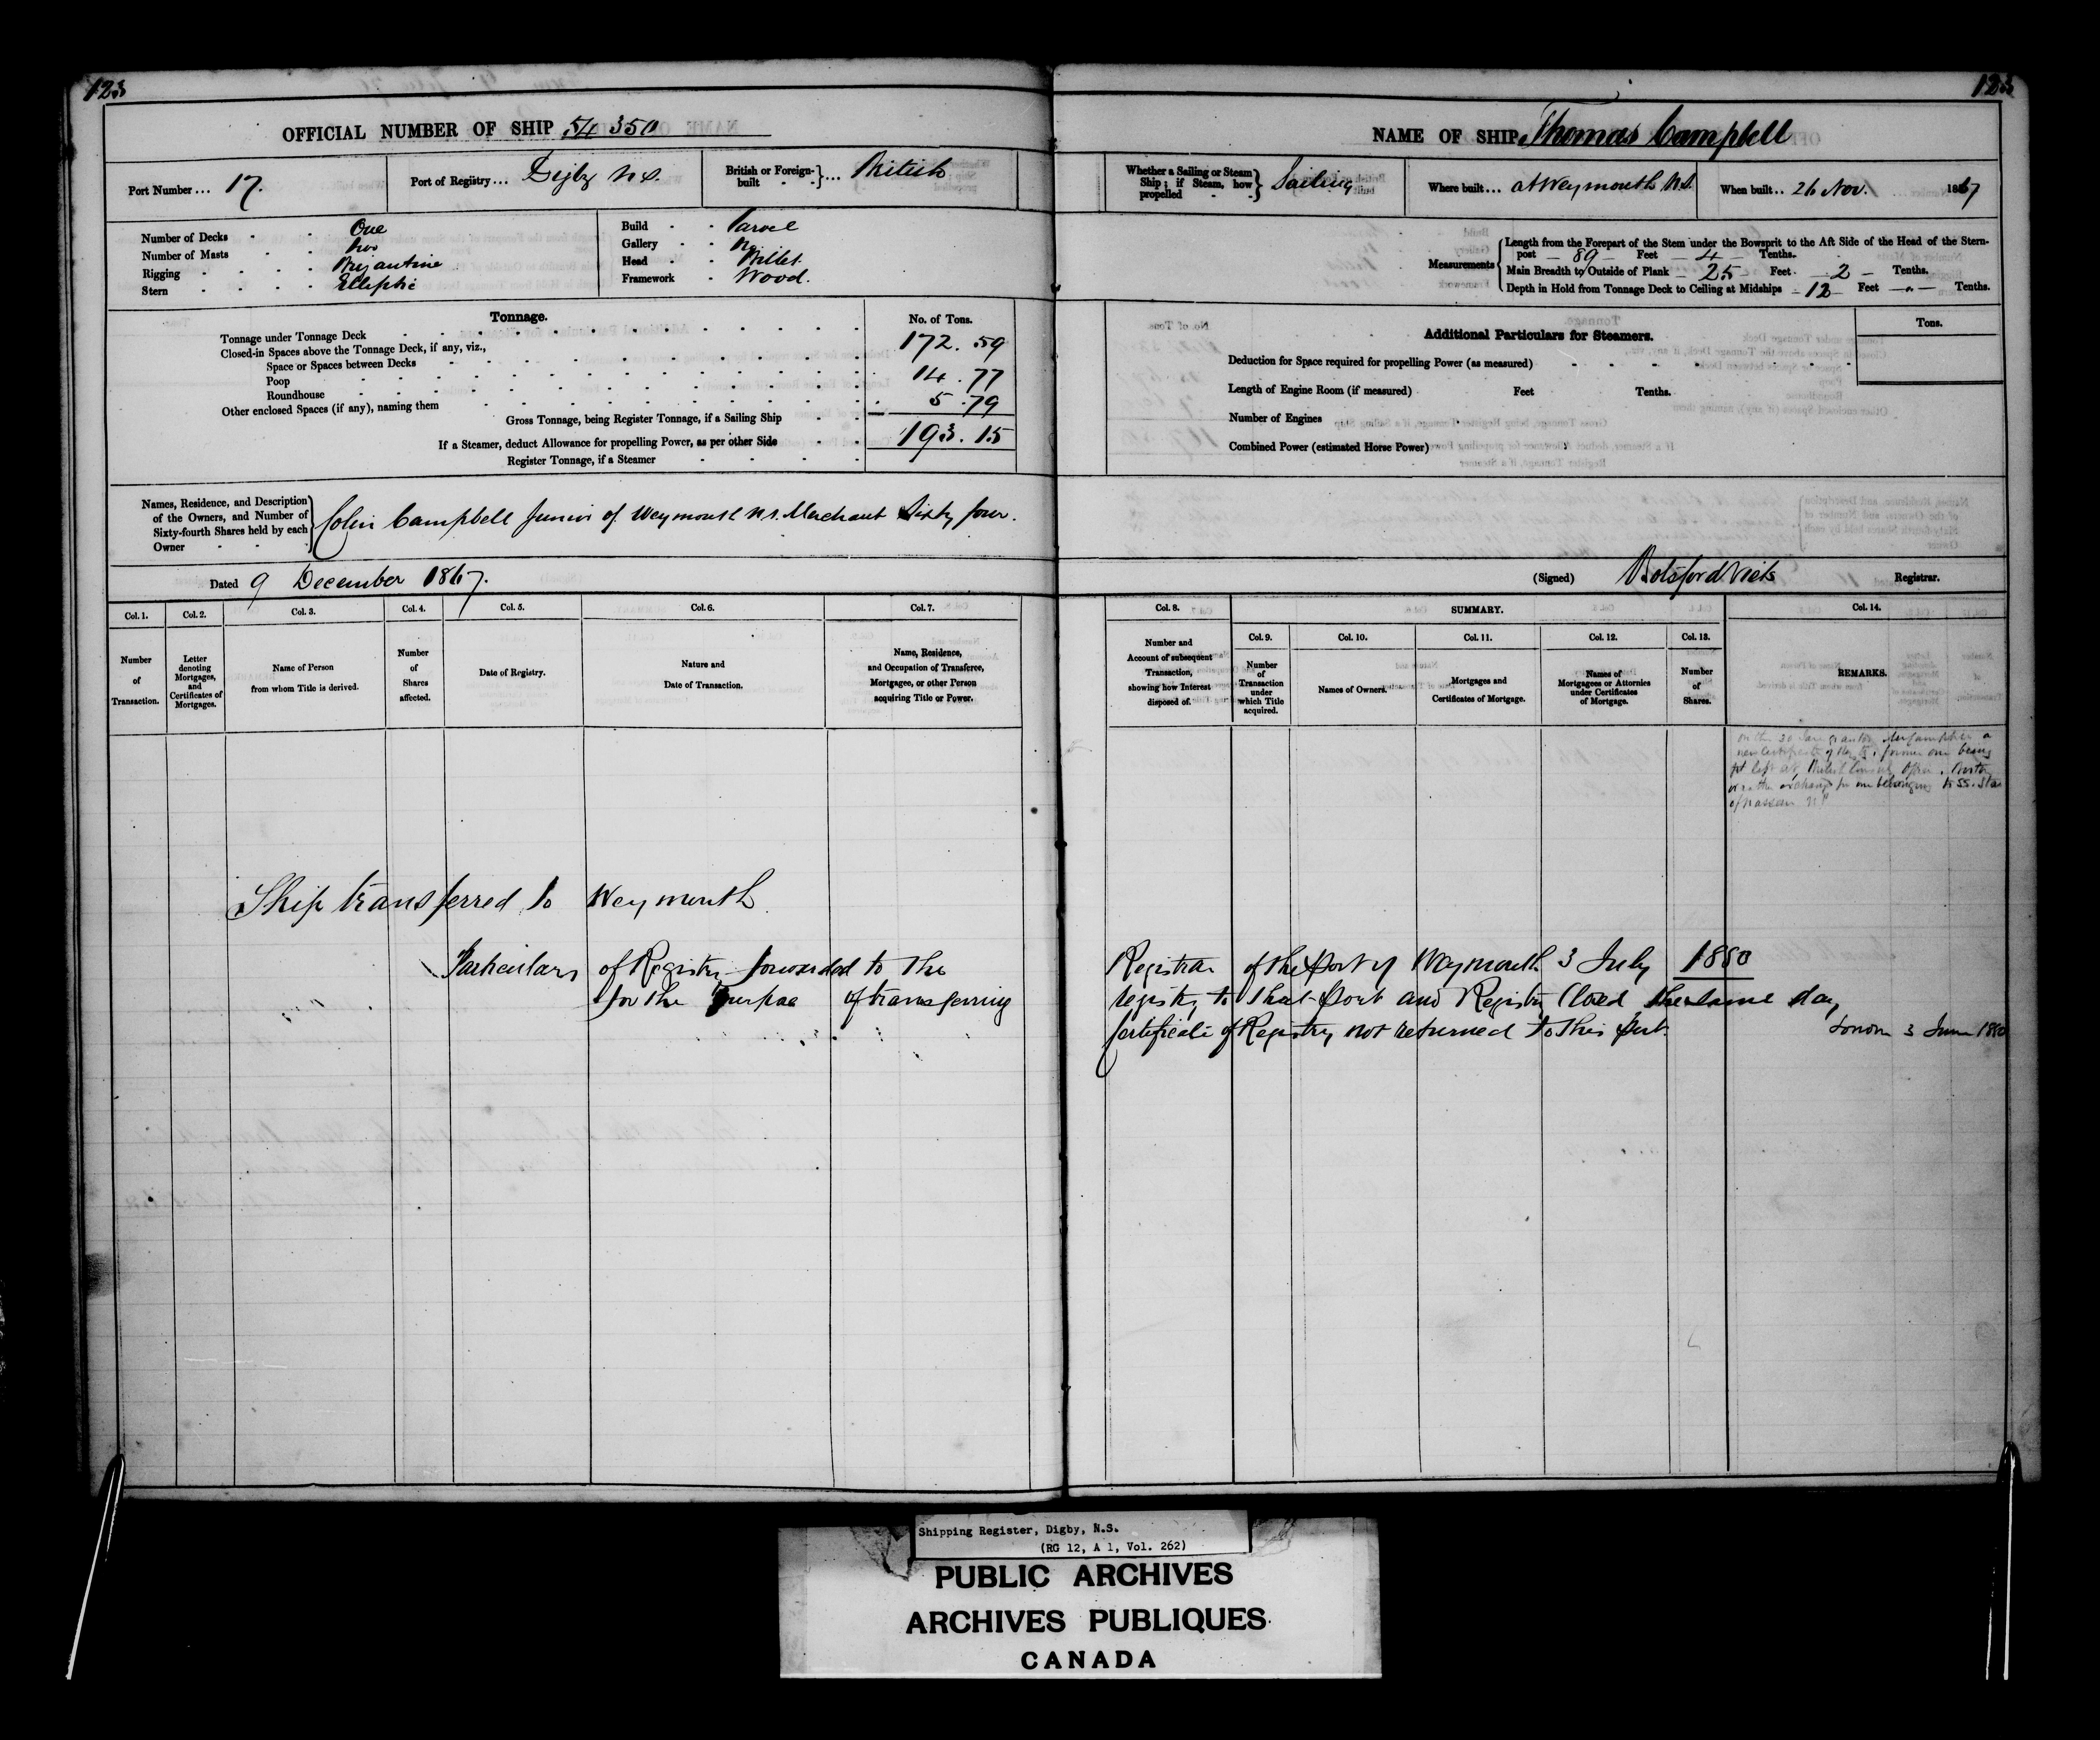 123
123
OFFICIAL NUMBER OF SHIP 54 350
NAME OF SHIP Thomas Campbell
Port Number ... 17.
Port of Registry ... Digby N.S.
British or Foreign-built } ... British
Whether a Sailing or Steam Ship; if Steam, how propelled } Sailing
Where built ... at Weymouth N.S.
When built .. 26 Nov. 1867
Number of Decks One
Number of Masts Two
Rigging Brigantine
Stern Elliptic
Build Carvel
Gallery No
Head Billet
Framework Wood.
Measurements
Length from the Forepart of the Stem under the Bowsprit to the Aft Side of the Head of the Stern-
post — 89 — Feet — 4 — Tenths.
Main Breadth to Outside of Plank — 25 — Feet — 2 — Tenths.
Depth in Hold from Tonnage Deck to Ceiling at Midships — 12 — Feet — " — Tenths.
Tonnage.
No. of Tons.
Tonnage under Tonnage Deck 172.59
Closed-in Spaces above the Tonnage Deck, if any, viz.,
Space or Spaces between Decks
Poop 14.77
Roundhouse
Other enclosed Spaces (if any), naming them 5.79
Gross Tonnage, being Register Tonnage, if a Sailing Ship
193.15
If a Steamer, deduct Allowance for propelling Power, as per other Side
Register Tonnage, if a Steamer
Additional Particulars for Steamers.
Tons.
Deduction for Space required for propelling Power (as measured)
Length of Engine Room (if measured) Feet Tenths.
Number of Engines
Combined Power (estimated Horse Power)
Names, Residence, and Description
of the Owners, and Number of
Sixty-fourth Shares held by each
Owner
Colin Campbell Junior of Weymouth N.S. Merchant Sixty four.
Dated 9 December 1867.
(Signed) Botsford Viets Registrar.
Col. 1.
Number of Transaction.
Col. 2.
Letter denoting Mortgages, and Certificates of Mortgages.
Col. 3.
Name of Person from whom Title is derived.
Col. 4.
Number of Shares affected.
Col. 5.
Date of Registry.
Col. 6.
Nature and Date of Transaction.
Col. 7.
Name, Residence, and Occupation of Transferee, Mortgagee, or other Person acquiring Title or Power.
Col. 8.
Number and Account of subsequent Transaction, showing how Interest disposed of.
SUMMARY.
Col. 9.
Number of Transaction under which Title acquired.
Col. 10.
Names of Owners.
Col. 11.
Mortgages and Certificates of Mortgage.
Col. 12.
Names of Mortgagees or Attornies under Certificates of Mortgage.
Col. 13.
Number of Shares.
Col. 14.
REMARKS.
on the 30 granted a
new Certificate of former one being
left at British Consul Office
exchange for one belonging to SS. Star
of Nassau N.P
Ship transferred to Weymouth
Particulars of Registry forwarded to the Registrar of the Port of Weymouth 3 July 1880
for the purpose of transferring registry to that Port and Registry Closed the same day,
Certificate of Registry not returned to this Port.
3 June 1880
Shipping Register, Digby, N.S.
(RG 12, A 1, Vol. 262)
PUBLIC ARCHIVES
ARCHIVES PUBLIQUES
CANADA